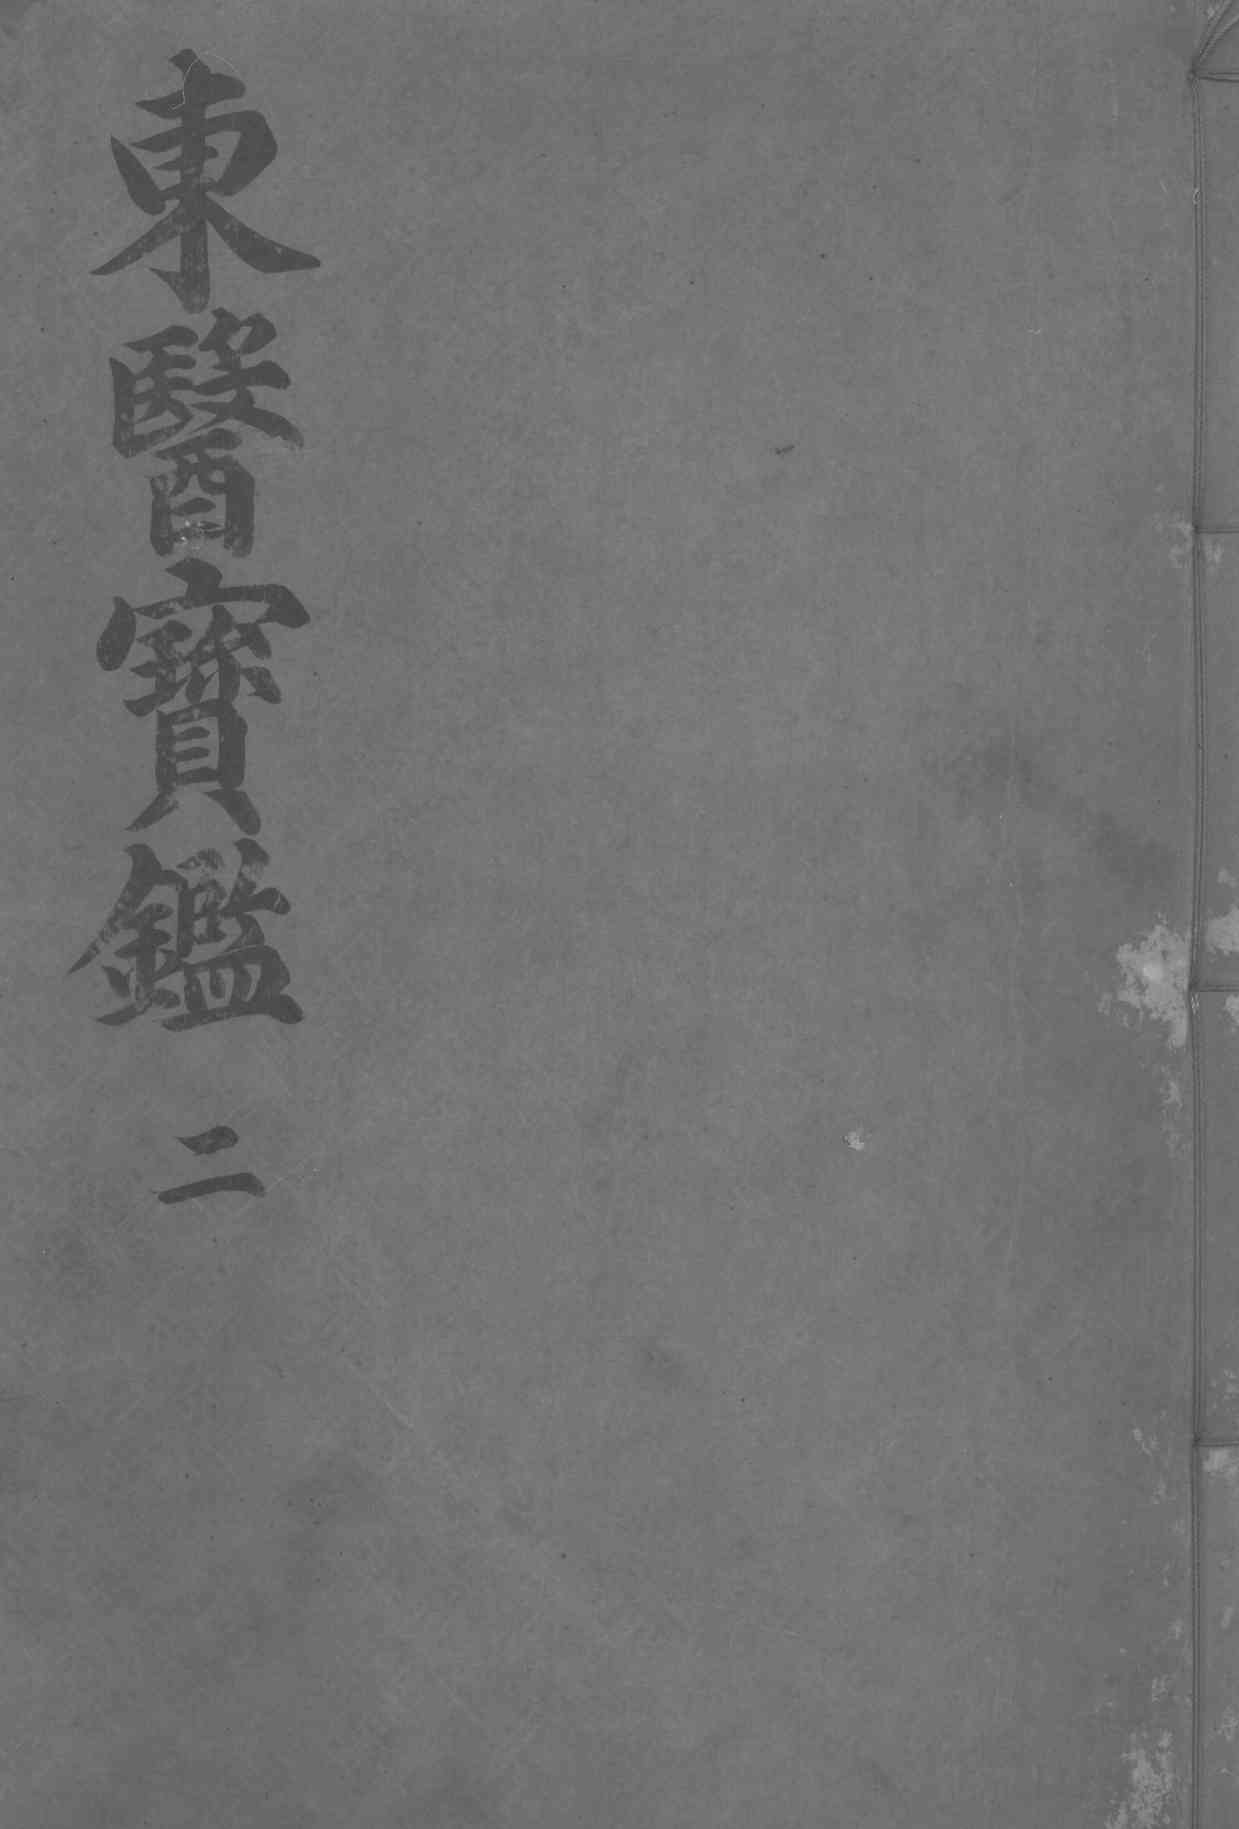 東醫寶鑑 二